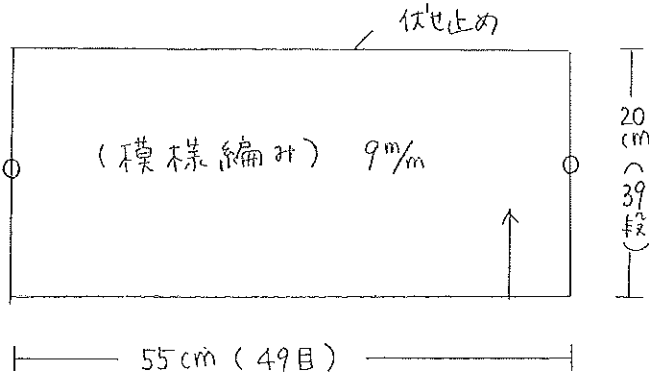 伏せ止め
(模様編み) 9m/m
20cm(39段)
55cm(49目)